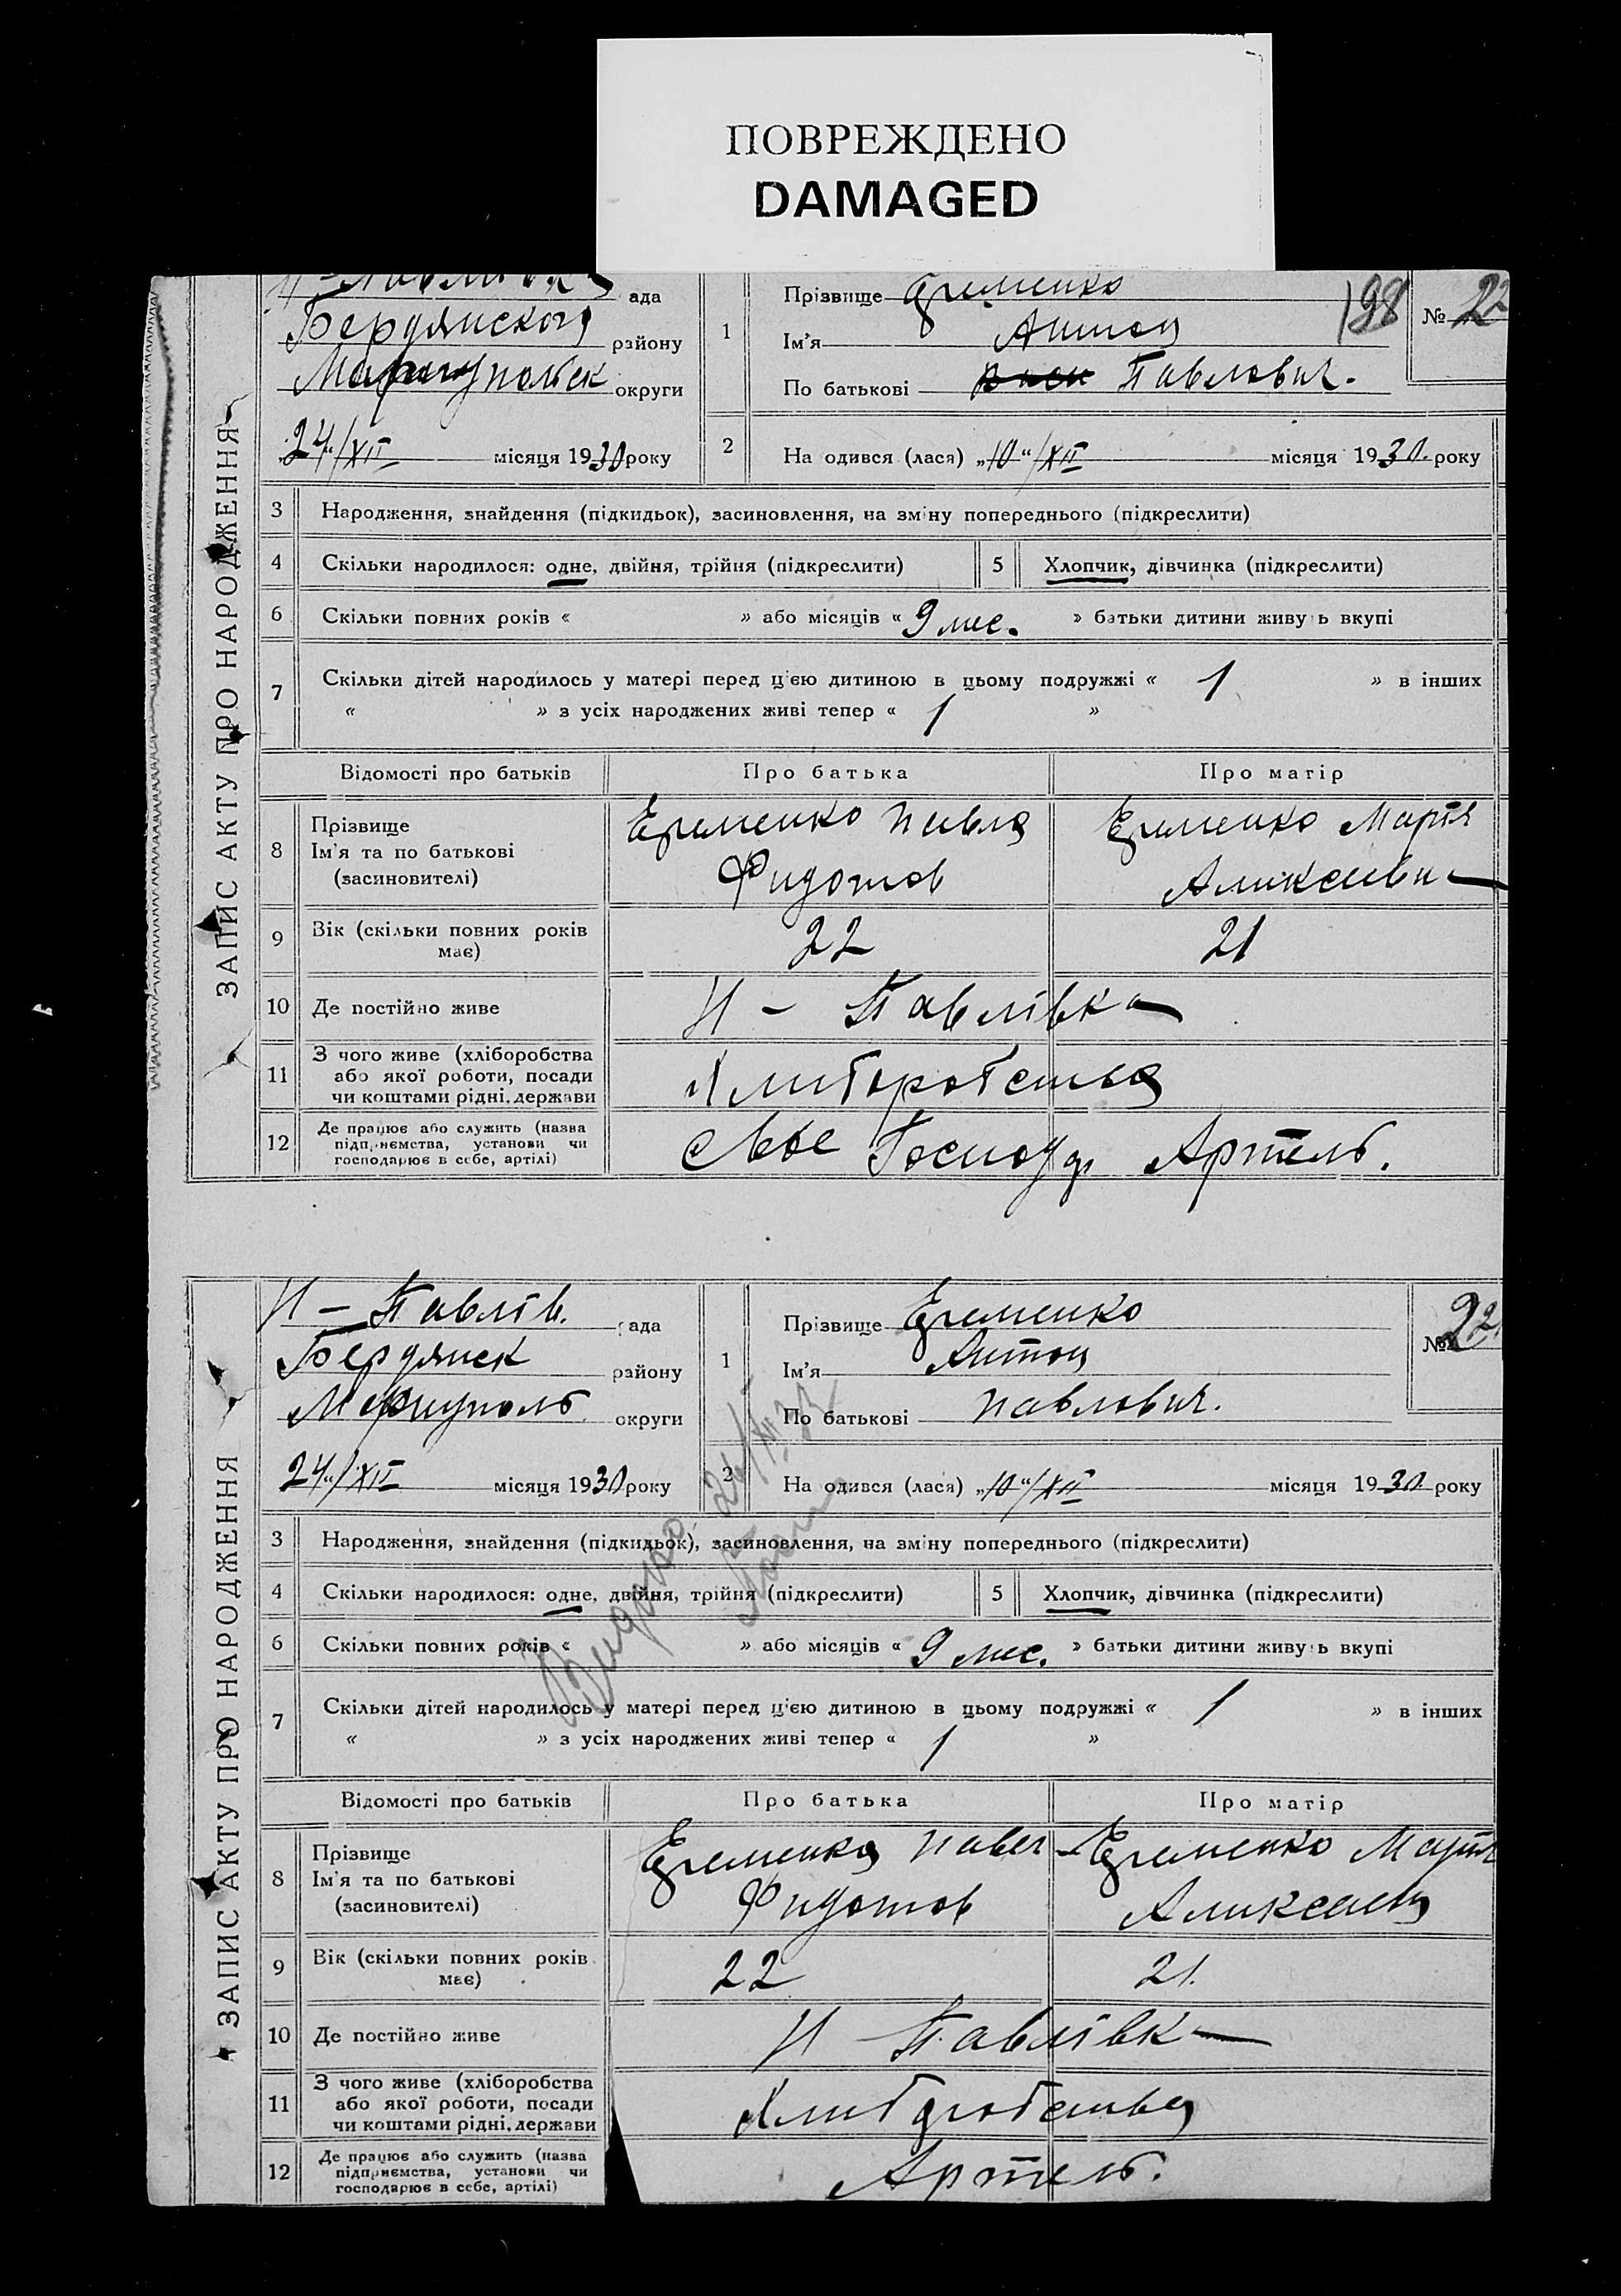 ПОВРЕЖДЕНО
DAMAGED
ЗАПИС АКТУ ПРО НАРОДЖЕННЯ
ада
Бердянского району
округи
24/XII місяця 1930 року
198
№ 22
1 Прізвище Еременко
Ім'я Антон
По батькові Павлович.
2 На одився (лася) „10“/XII місяця 1930. року
3 Народження, знайдення (підкидьок), засиновлення, на зміну попереднього (підкреслити)
4 Скільки народилося: одне, двійня, трійня (підкреслити) 5 Хлопчик, дівчинка (підкреслити)
6 Скільки повних років « » або місяців « 9 мес. » батьки дитини живу ь вкупі
7 Скільки дітей народилось у матері перед цією дитиною в цьому подружжі « 1 » в інших
« » з усіх народжених живі тепер « 1 »
Відомості про батьків Про батька Про матір
8 Прізвище
Ім'я та по батькові
(засиновителі)
Еременко Павло
Фидотов
Еременко Мартя
Аликсеевн
9 Вік (скільки повних років
має)
22 21
10 Де постійно живе Н - Павлівка
11 З чого живе (хліборобства
або якої роботи, посади
чи коштами рідні, держави
Хлиборобства
12 Де працює або служить (назва
підприємства, установи чи
господарює в себе, артілі)
Свое Господ. Артель.
ЗАПИС АКТУ ПРО НАРОДЖЕННЯ
Н - Павлів. рада
Бердянск району
Мариуполь округи
24“/XII місяця 1930 року
№ 22
1 Прізвище Еременко
Ім'я Антон
По батькові Павлович.
2 На одився (лася) „10“/XII місяця 1930. року
3 Народження, знайдення (підкидьок), засиновлення, на зміну попереднього (підкреслити)
4 Скільки народилося: одне, двійня, трійня (підкреслити) 5 Хлопчик, дівчинка (підкреслити)
6 Скільки повних років « » або місяців « 9 мес. » батьки дитини живу ь вкупі
7 Скільки дітей народилось у матері перед цією дитиною в цьому подружжі « 1 » в інших
« » з усіх народжених живі тепер « 1 »
Відомості про батьків Про батька Про матір
8 Прізвище
Ім'я та по батькові
(засиновителі)
Еременко Павел
Фидотов
Еременко Мартя
Аликсеев
9 Вік (скільки повних років
має)
22 21.
10 Де постійно живе Н - Павлівк
11 З чого живе (хліборобства
або якої роботи, посади
чи коштами рідні, держави
Хлиборобства
12 Де працює або служить (назва
підприємства, установи чи
господарює в себе, артілі)
Артель.